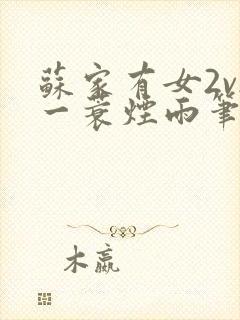 蘇家有女2v
一蓑煙雨筆
木嬴